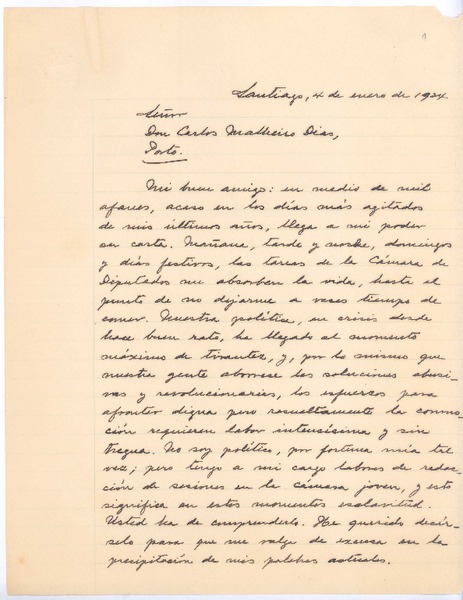 1
Santiago, 4 de enero de 1924.
Señor
Don Carlos Malheiro Dias,
Porto.
Mi buen amigo: en medio de mil
afanes, acaso en los días más agitados
de mis últimos años, llega a mi poder
su carta. Mañana, tarde y noche, domingos
y días festivos, las tareas de la Cámara de
Diputados me absorben la vida, hasta el
punto de no dejarme a veces tiempo de
comer. Nuestra política, en crisis desde
hace buen rato, ha llegado al momento
máximo de tirantez, y, por lo mismo que
nuestra gente aborrece las soluciones abusi-
vas y revolucionarias, los esfuerzos para
afrontar digna pero resueltamente la conmo-
ción requieren labor intensísima y sin
tregua. No soy político, por fortuna mía tal
vez; pero tengo a mi cargo labores de redac-
ción de sesiones en la cámara joven, y esto
significa en estos momentos esclavitud.
Usted ha de comprenderlo. He querido decír-
selo para que me valga de excusa en la
precipitación de mis palabras actuales.